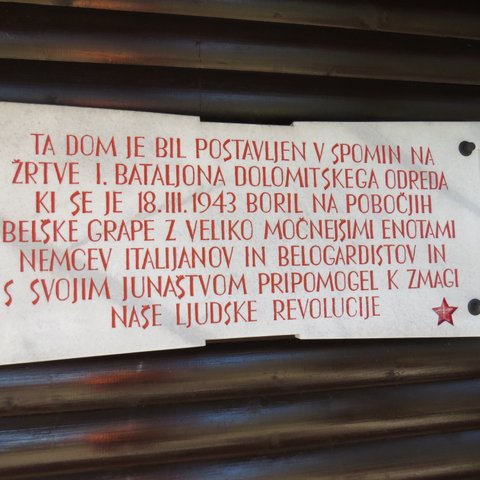 TA DOM JE BIL POSTAVLJEN V SPOMIN NA
ŽRTVE I. BATALJONA DOLOMITSKEGA ODREDA
KI SE JE 18.III.1943 BORIL NA POBOČJIH
BELSKE GRAPE Z VELIKO MOČNEJŠIMI ENOTAMI
NEMCEV ITALIJANOV IN BELOGARDISTOV IN
S SVOJIM JUNAŠTVOM PRIPOMOGEL K ZMAGI
NAŠE LJUDSKE REVOLUCIJE